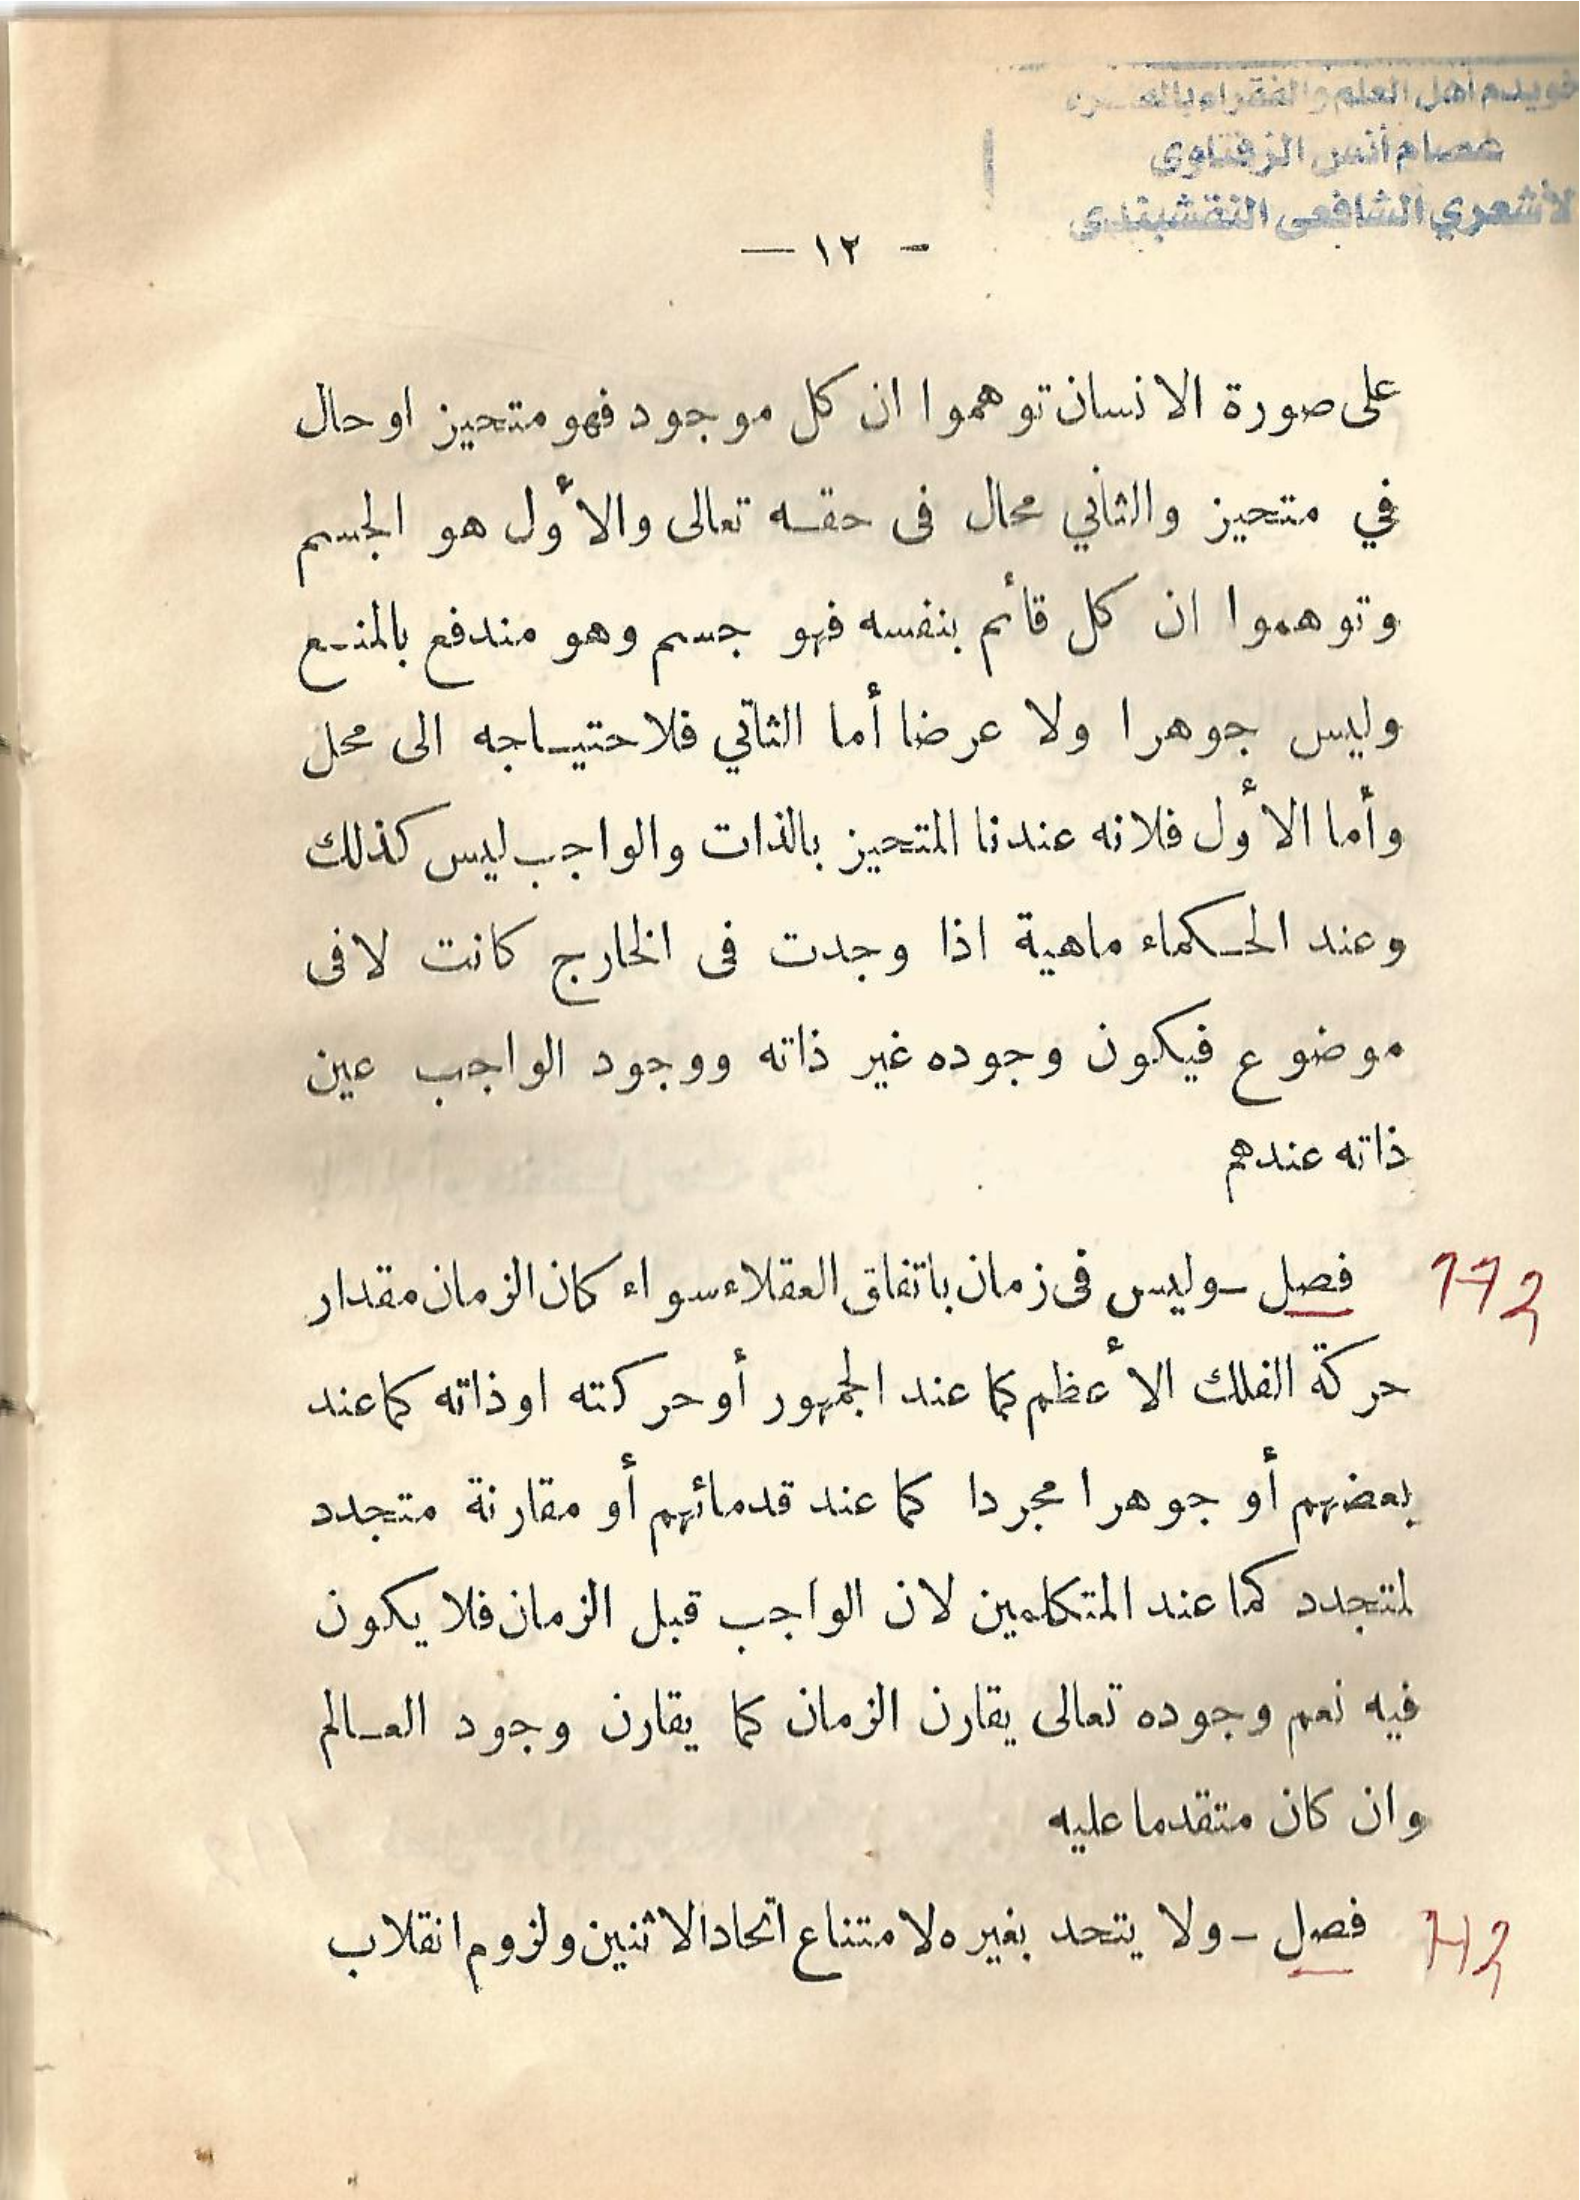 خويدم أهل العلم والفقراء
عصام أنس الزفتاوى
الأشعري الشافعى النقشبندى
— ١٢ -
على صورة الانسان توهموا ان كل موجود فهو متحيز او حال
في متحيز والثاني محال فى حقه تعالى والأول هو الجسم
وتوهموا ان كل قائم بنفسه فهو جسم وهو مندفع بالمنع
وليس جوهرا ولا عرضا أما الثاني فلاحتياجه الى محل
وأما الأول فلانه عندنا المتحيز بالذات والواجب ليس كذلك
وعند الحكماء ماهية اذا وجدت فى الخارج كانت لافى
موضوع فيكون وجوده غير ذاته ووجود الواجب عين
ذاته عندهم
فصل – وليس فى زمان باتفاق العقلاء سواء كان الزمان مقدار
حركة الفلك الأعظم كما عند الجمهور أو حركته او ذاته كما عند
بعضهم أو جوهرا مجردا كما عند قدمائهم أو مقارنة متجدد
لمتجدد كما عند المتكلمين لان الواجب قبل الزمان فلا يكون
فيه نعم وجوده تعالى يقارن الزمان كما يقارن وجود العالم
وان كان متقدما عليه
فصل – ولا يتحد بغيره لامتناع اتحاد الاثنين ولزوم انقلاب